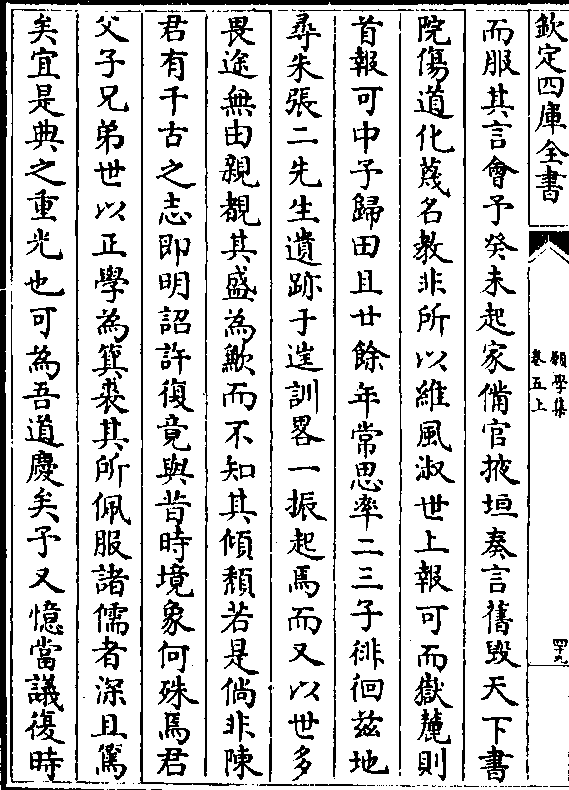 欽定四庫全書
願學集
卷五上
四十九
而服其言會予癸未起家備官掖垣奏言舊毀天下書
院傷道化蔑名教非所以維風淑世上報可而嶽麓則
首報可中予歸田且廿餘年常思率二三子徘徊茲地
尋朱張二先生遺跡于遑訓畧一振起焉而又以世多
畏途無由親覩其盛為歉而不知其傾頽若是倘非陳
君有千古之志即明詔許復竟與昔時境象何殊焉君
父子兄弟世以正學為箕裘其所佩服諸儒者深且篤
矣宜是典之重光也可為吾道慶矣予又憶當議復時